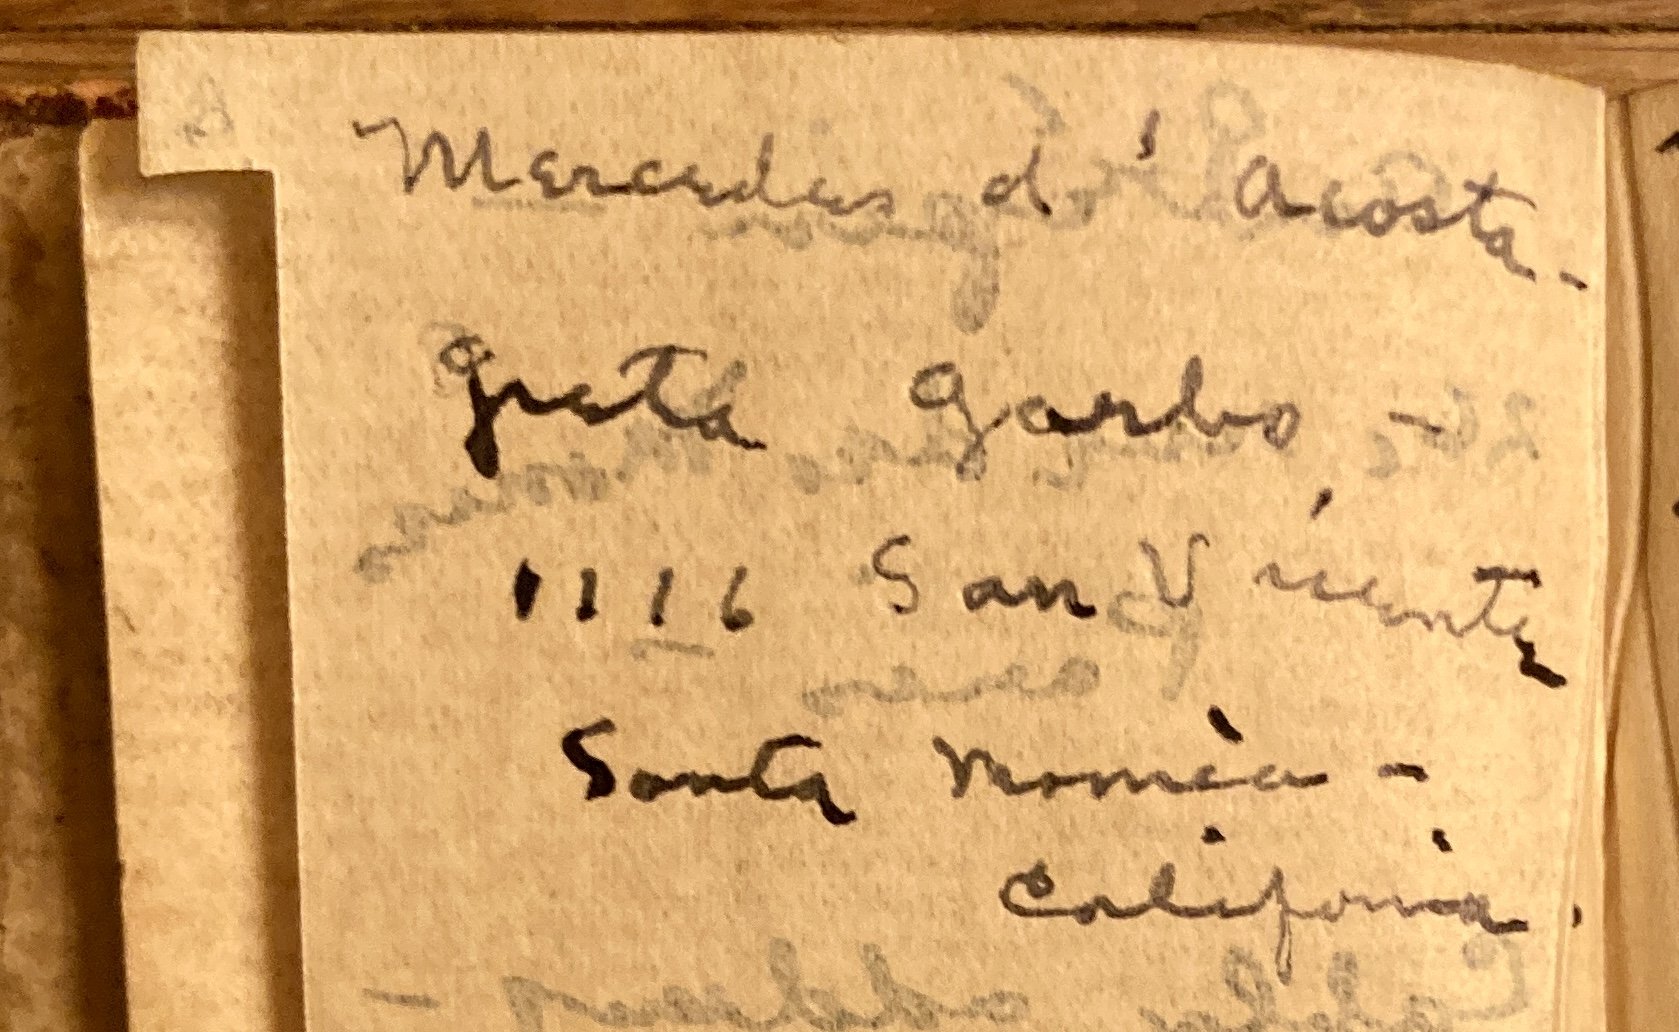 Mercedes d' Acosta -
Greta Garbo -
1116 San Vicente
Santa Monica -
California.